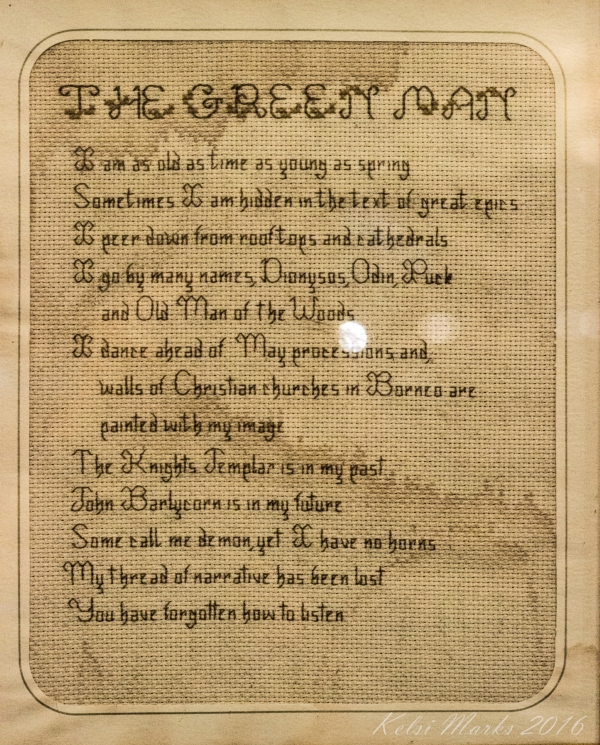 THE GREEN MAN
I am as old as time as young as spring
Sometimes I am hidden in the text of great epics
I peer down from rooftops and cathedrals
I go by many names, Dionysos, Odin, Puck
and Old Man of the Woods
I dance ahead of May processions and,
walls of Christian churches in Borneo are
painted with my image
The Knights Templar is in my past
John Barlycorn is in my future
Some call me demon, yet I have no horns
My thread of narrative has been lost
You have forgotten how to listen
Kelsi Marks 2016